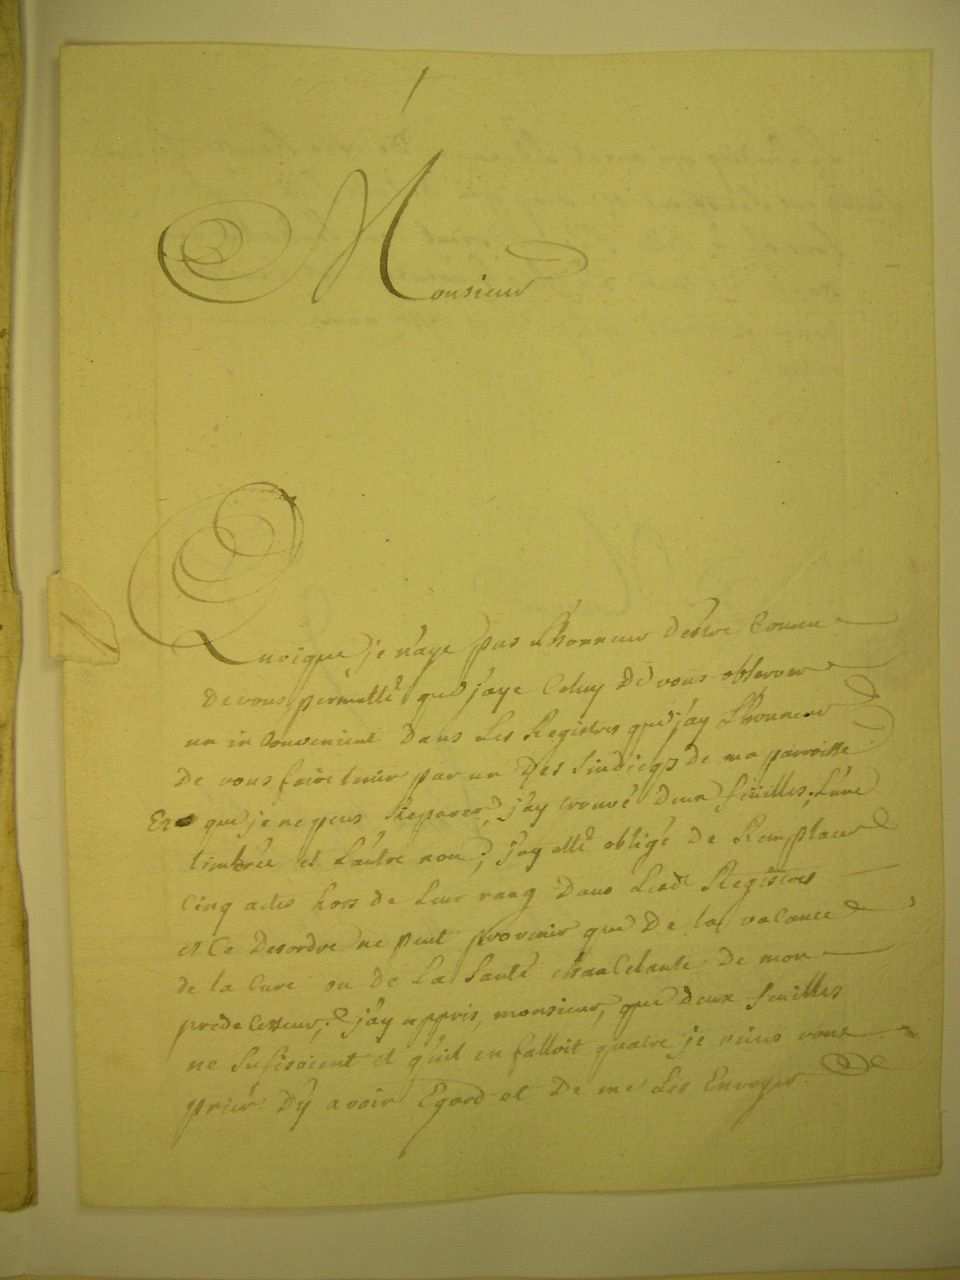 Monsieur
Quoique je n'aye pas l'honneur d'estre Connu
De vous permetté que j'aye Celuy De vous observer
un inconvenient Dans Les Registres que j'ay L'honneur
De vous faire tenir par un Des sindicqs de ma parroisse
Et que je ne peus Reparer, j'ay trouvé Deux feüilles, L'une
timbrée et L'autre non; j'ay etté obligé De Remplacer
Cinq actes hors de Leur rang Dans Lesdt Registres
et Ce Desordre ne peut provenir que De la vacance
de la Cure ou De La santé chancelante De mon
predecesseur; j'ay appris, monsieur, que Deux feuilles
ne sufisoient et qu'il en falloit quatre je viens vous
prier D'y avoir Egard et De me Les Envoyer